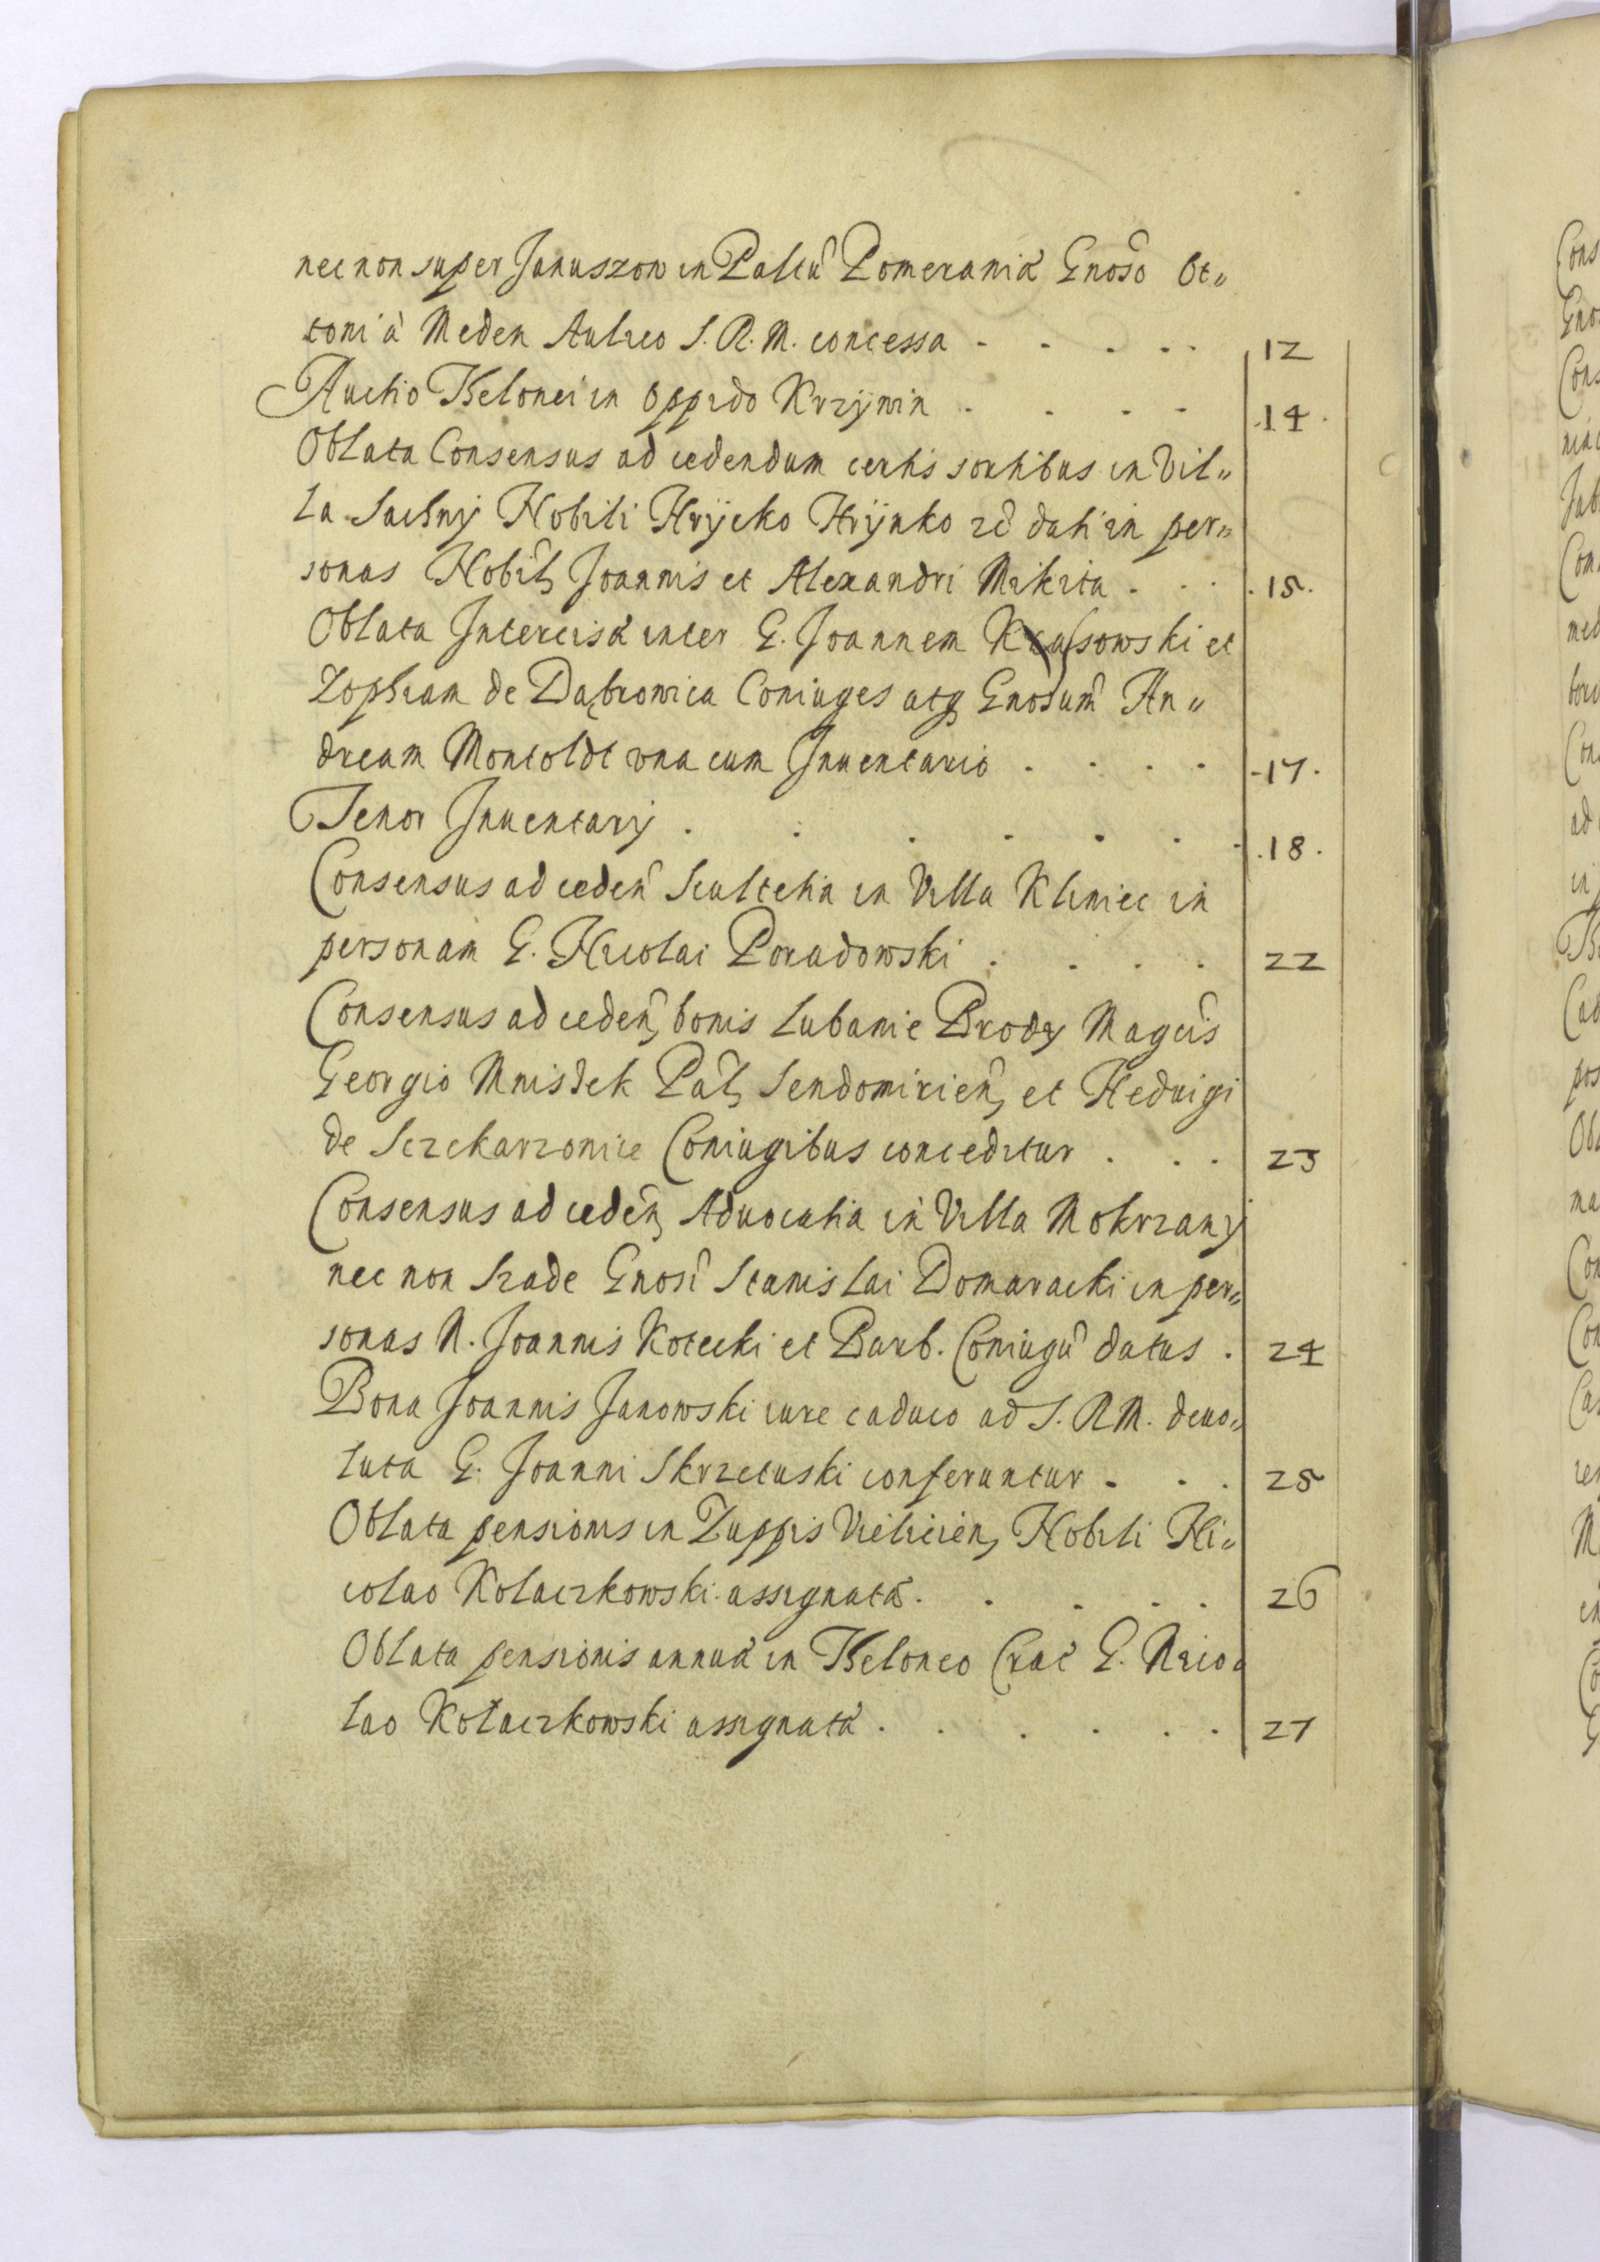 nec non super Januszow in Paltũ Pomeraniæ Gnoso Ot„
toni à Meden Aulico S. R. M. concessa . . . . . 12
Auctio Thelonei in Oppido Krzywin . . . . .14.
Oblata Consensus ad cedendum certis sortibus in Vil„
la Jachny Nobili Hrycko Hrynko etc dati in per„
sonas Nobil, Joannis et Alexandri Mikita . . . 15.
Oblata Intercisæ inter G. Joannem Krassowski et
Zophiam de Dąbrowica Coniuges atq Gnosum An„
dream Montoldt vna cum Inuentario . . . . 17.
Tenor Inuentarij . . . . . . . 18.
Consensus ad ceden Scultetia in Villa Klimiec in
personam G. Nicolai Poradowski . . . . 22
Consensus ad ceden, bonis Lubanie Brody Magcis
Georgio Mniszek Pal, Sendomirien, et Heduigi
de Sczekarzowice Coniugibus conceditur . . . 23
Consensus ad ceden, Aduocatia in Villa Mokrzany
nec non Szade Gnosi Stanislai Domaracki in per„
sonas N. Joannis Kotecki et Barb. Coniugũ datus . 24
Bona Joannis Janowski iure caduco ad S. R M. deuo„
luta G. Joanni Skrzetuski conferuntur . . . 25
Oblata pensionis in Zuppis Vieliciën, Nobili Ni„
colao Kolaczkowski assignatæ . . . . . 26
Oblata pensionis annuæ in Theloneo Crac G. Nico„
lao Kolaczkowski assignatæ . . . . . . 27
Cons
Gno
Cons